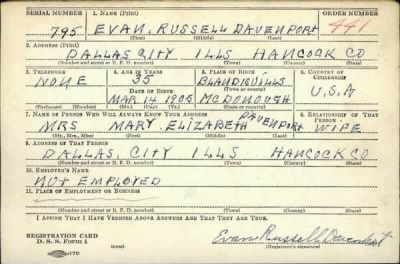 SERIAL NUMBER 1. NAME (Print) ORDER NUMBER
795 EVAN RUSSELL DAVENPORT 441
(First) (Middle) (Last)
2. ADDRESS (Print)
DALLAS CITY ILLS HANCOCK CO
(Number and street or R. F. D. number) (Town) (County) (State)
3. TELEPHONE 4. AGE IN YEARS 5. PLACE OF BIRTH 6. COUNTRY OF CITIZENSHIP
NONE 35 BLANDIN ILLS
DATE OF BIRTH (Town or county)
MAR 14 1905 MCDONOUGH U.S.A
(Exchange) (Number) (Mo.) (Day) (Yr.) (State or country)
7. NAME OF PERSON WHO WILL ALWAYS KNOW YOUR ADDRESS 8. RELATIONSHIP OF THAT PERSON
MRS MARY ELIZABETH DAVENPORT WIFE
(Mr., Mrs., Miss) (First) (Middle) (Last)
9. ADDRESS OF THAT PERSON
DALLAS CITY ILLS HANCOCK CO
(Number and street or R. F. D. number) (Town) (County) (State)
10. EMPLOYER'S NAME
NOT EMPLOYED
11. PLACE OF EMPLOYMENT OR BUSINESS
(Number and street or R. F. D. number) (Town) (County) (State)
I AFFIRM THAT I HAVE VERIFIED ABOVE ANSWERS AND THAT THEY ARE TRUE.
REGISTRATION CARD
D. S. S. Form 1 Evan Russell Davenport
(over) (Registrant's signature)